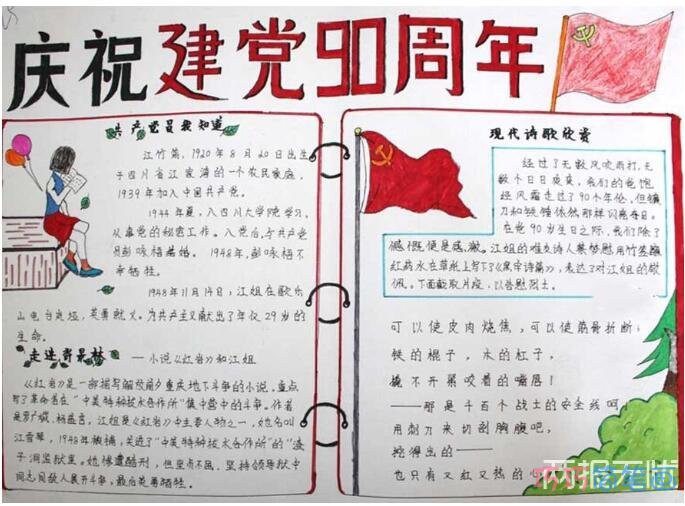 庆祝建党90周年
共产党员我知道
江竹筠，1920年8月20日出生
于四川省江家湾的一个农民家庭，
1939年加入中国共产党。
1944年夏，入四川大学院学习，
从事党的秘密工作。入党后，与共产党
员彭咏梧结婚。1948年，彭咏梧不
幸牺牲。
1948年11月14日，江姐在歌乐
山电台岚垭，英勇就义。为共产主义献出了年仅29岁的
生命。
走进青景林 — 小说《红岩》和江姐
《红岩》是一部描写解放前夕重庆地下斗争的小说。重点
写了革命者在“中美特种技术合作所”集中营中的斗争。作者
是罗广斌、杨益言。江姐是《红岩》中主要人物之一，她名叫
江雪琴，1948年被捕，关进了“中美特种技术合作所”的“渣
子洞监狱里。她惨遭酷刑，但坚贞不屈，坚持领导狱中
同志同敌人展开斗争，最后英勇牺牲。
现代诗歌欣赏
经过了无数风吹雨打，无
数个日日夜夜，我们的党饱
经风霜走过了90个年轮，但镰
刀和铁锤依然那样闪亮夺目。
在党90岁生日之际，我们除了
感慨便是感激。江姐的难友诗人蔡梦慰用竹签蘸
红药水在草纸上写下了《黑牢诗篇》，表达了对江姐的敬
佩。下面截取片段，以告慰烈士。
可以使皮肉烧焦，可以使筋骨折断；
铁的棍子，木的杠子，
撬不开紧咬着的嘴唇！
——那是千百个战士的安全线呵
用刺刀来切剖胸腹吧，
挖得出的——
也只有又红又热的心